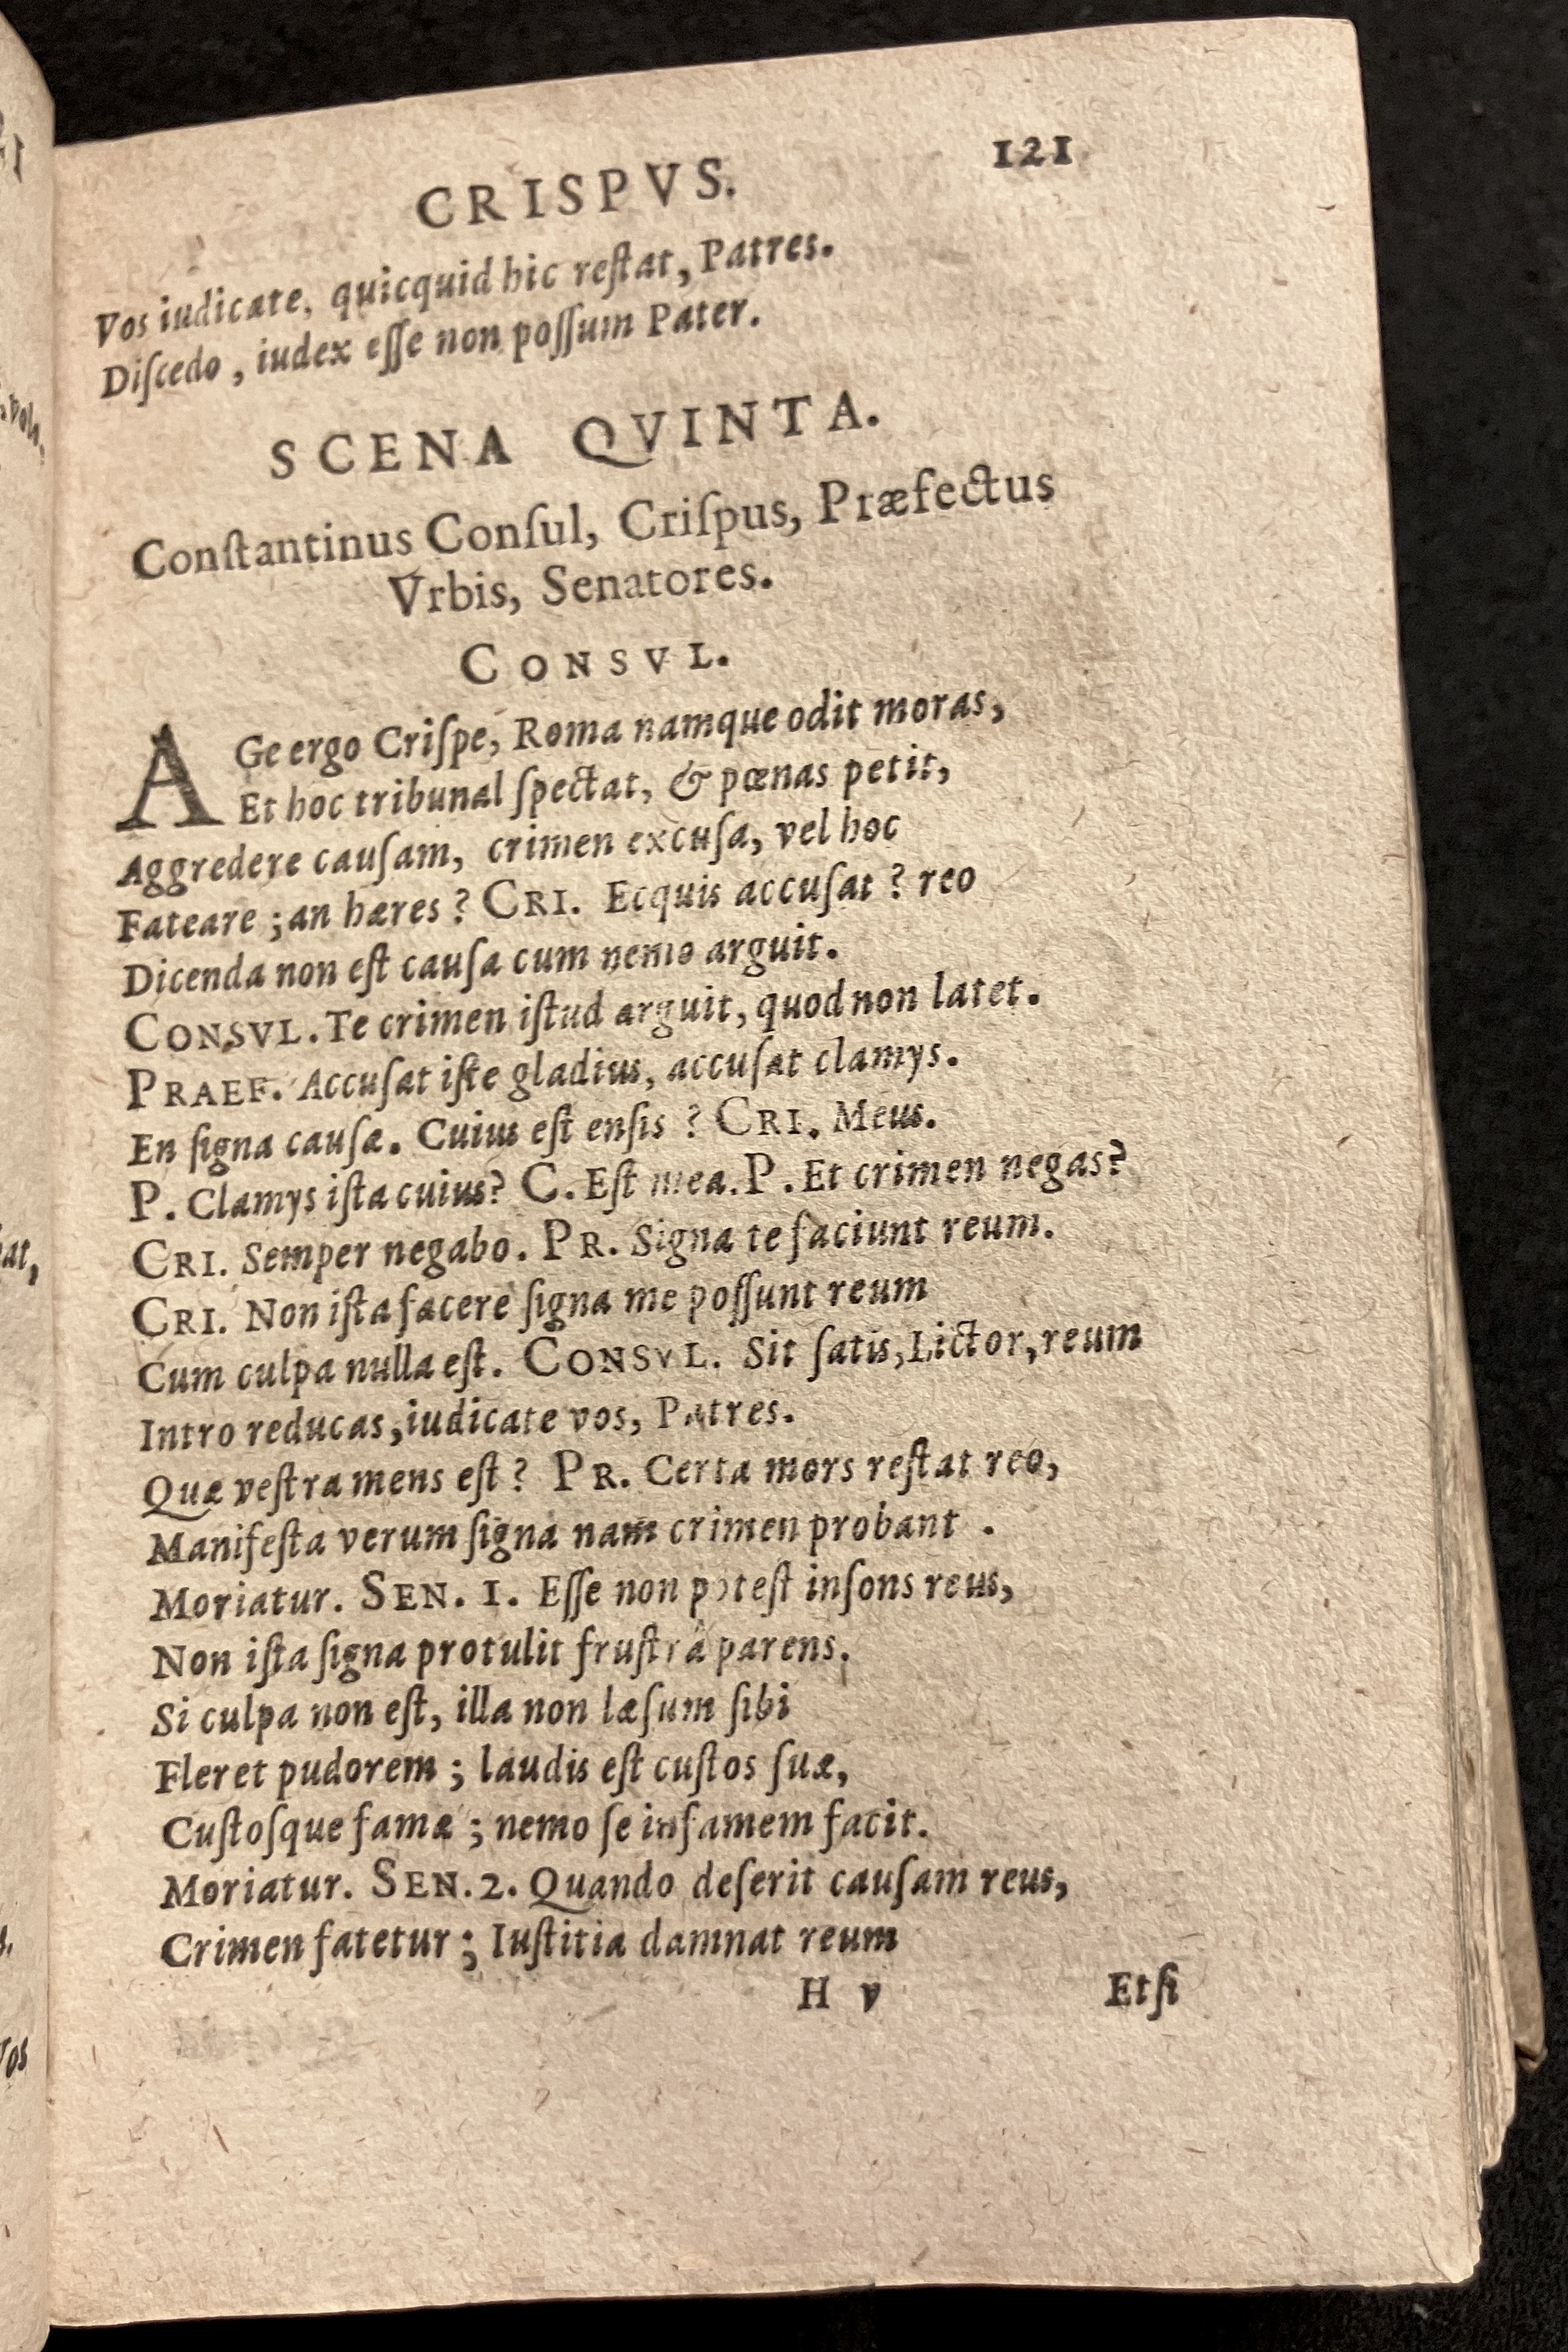 CRISPVS. 121
Vos iudicate, quicquid hic reſtat, Patres.
Diſcedo, iudex eſſe non poſſum Pater.
SCENA QVINTA.
Conſtantinus Conſul, Criſpus, Præfectus
Vrbis, Senatores.
CONSVL.
AGe ergo Criſpe, Roma namque odit moras,
Et hoc tribunal ſpectat, & pœnas petit,
Aggredere cauſam, crimen excuſa, vel hoc
Fateare ; an hæres ? CRI. Ecquis accuſat ? reo
Dicenda non eſt cauſa cum nemo arguit.
CONSVL. Te crimen iſtud arguit, quod non latet.
PRAEF. Accuſat iſte gladius, accuſat clamys.
En ſigna cauſæ. Cuius eſt enſis ? CRI. Meus.
P. Clamys iſta cuius? C. Eſt mea. P. Et crimen negas?
CRI. Semper negabo. PR. Signa te faciunt reum.
CRI. Non iſta facere ſigna me poſſunt reum
Cum culpa nulla eſt. CONSVL. Sit ſatis, Lictor, reum
Intro reducas, iudicate vos, Patres.
Quæ veſtra mens eſt ? PR. Certa mors reſtat reo,
Manifeſta verum ſigna nam crimen probant .
Moriatur. SEN. 1. Eſſe non poteſt inſons reus,
Non iſta ſigna protulit fruſtrà parens.
Si culpa non eſt, illa non læſum ſibi
Fleret pudorem ; laudis eſt cuſtos ſuæ,
Cuſtoſque famæ ; nemo ſe infamem facit.
Moriatur. SEN. 2. Quando deſerit cauſam reus,
Crimen fatetur ; Iuſtitia damnat reum
H v Etſi